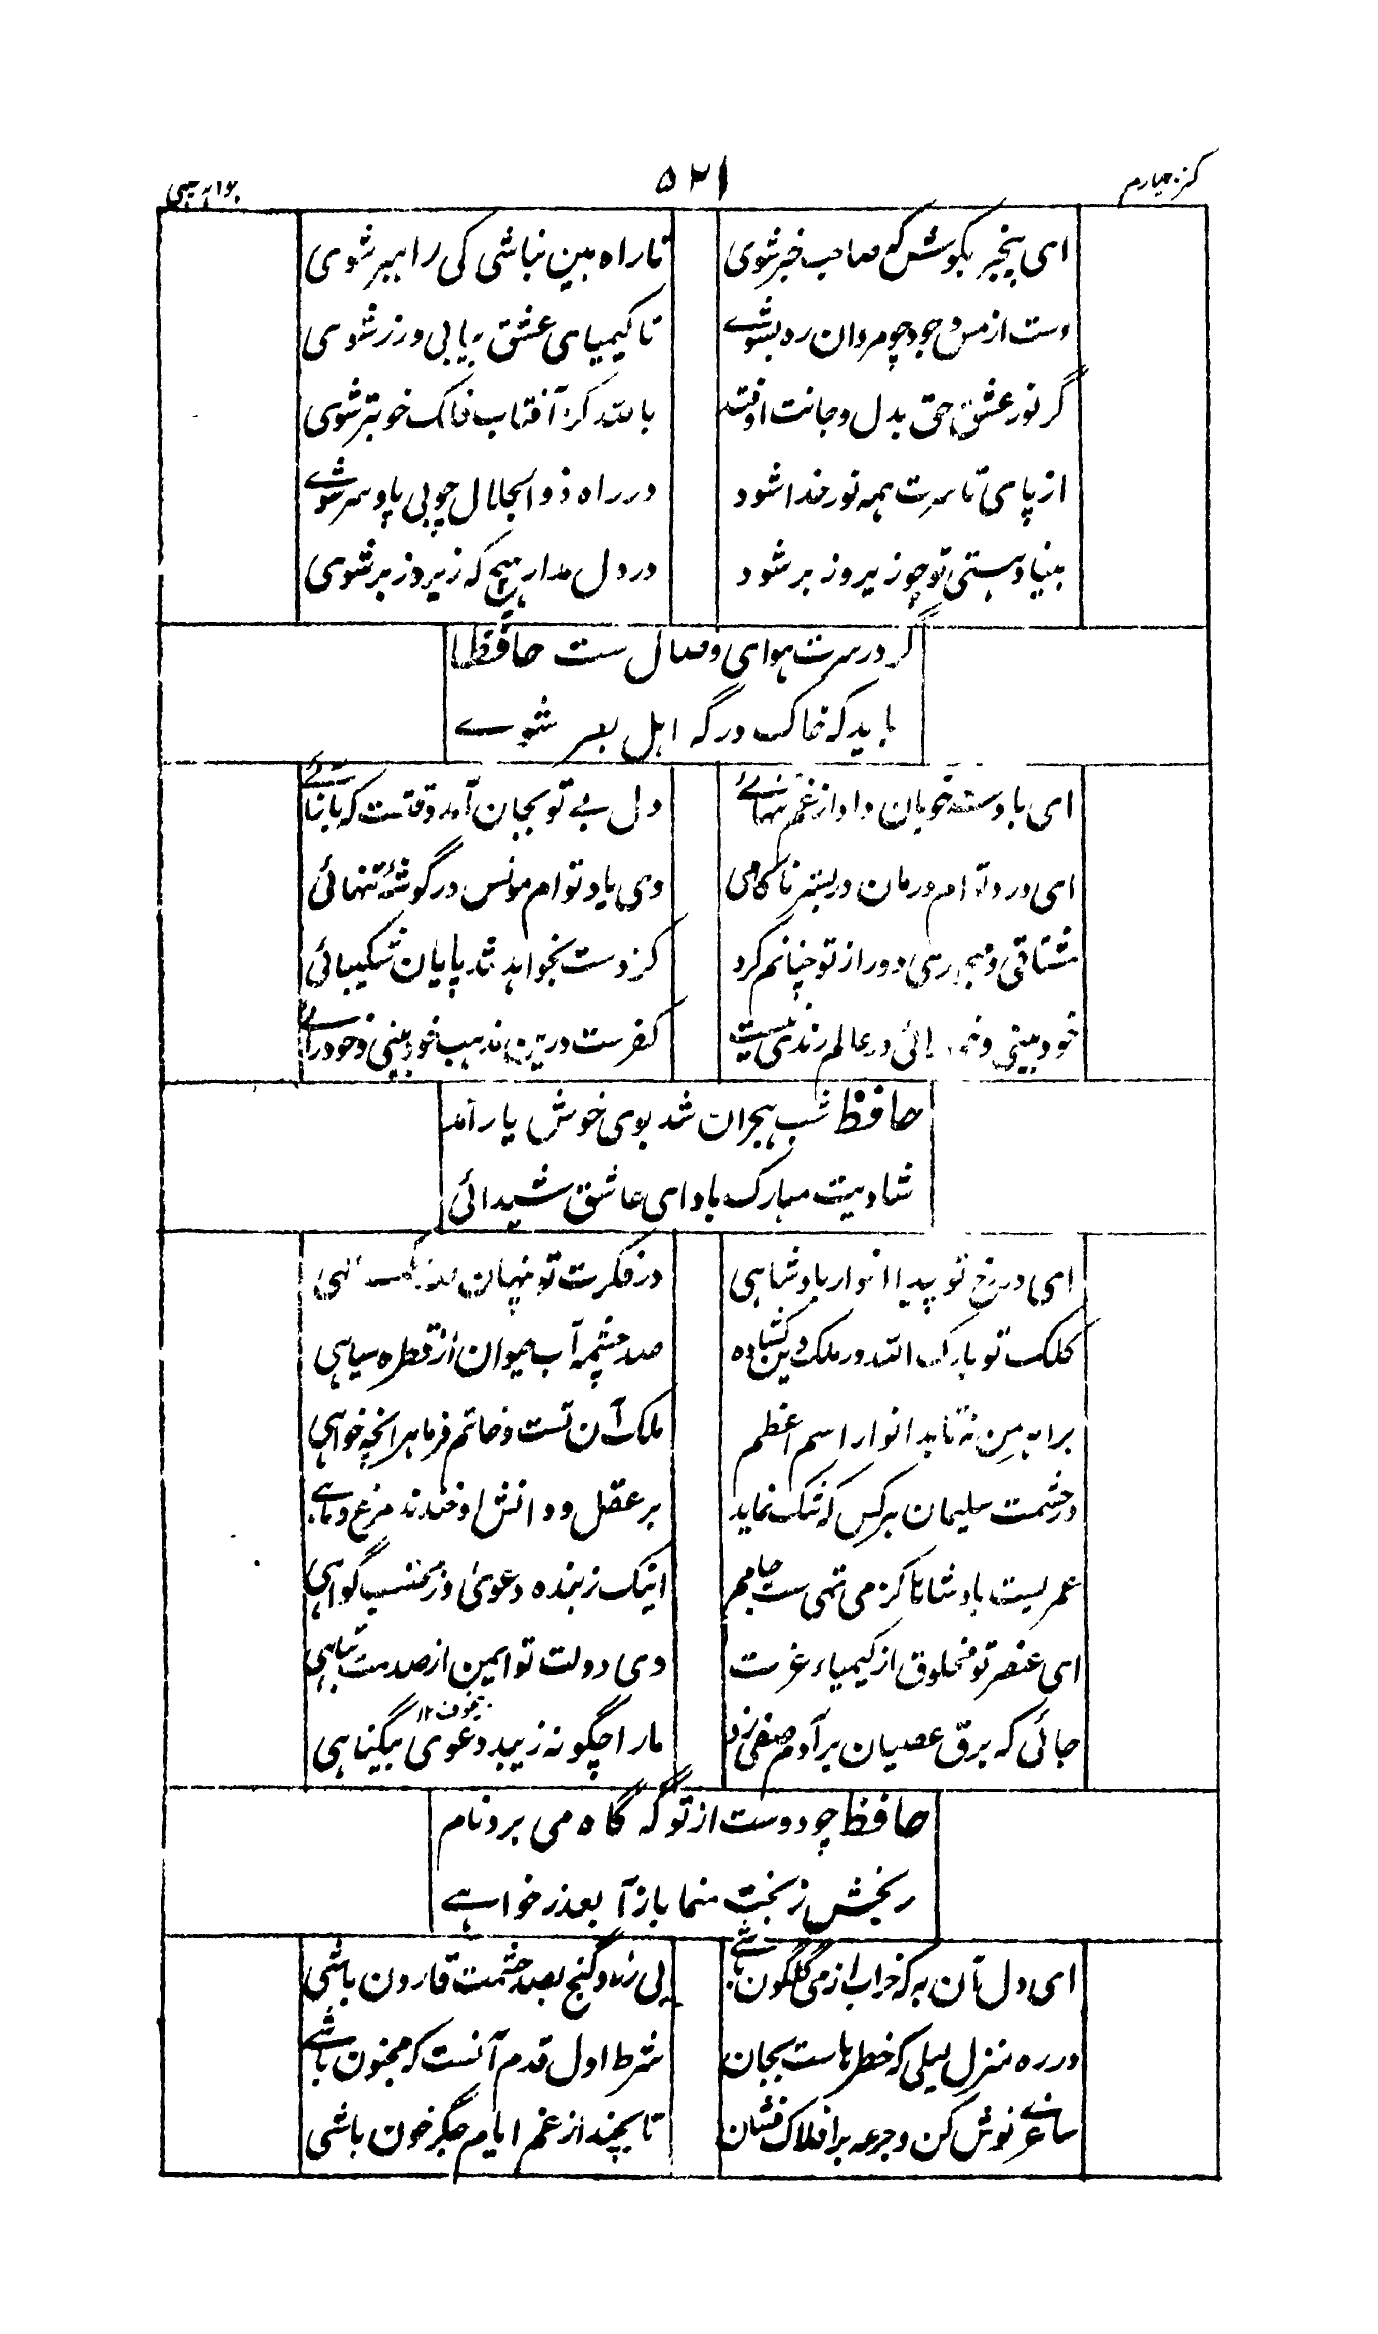 کنز چهارم
۵۲۱
ای بیخبر بکوش که صاحب خبر شوی
تا راه بین نباشی کی راہبر شوی
دست از مس وجود چو مردان ره بشوے
تا کیمیای عشق بیابی و زر شوی
گر نور عشق حق بدل و جانت اوفتد
باللہ کز آفتاب فلک خوبتر شوی
از پای تا سرت همه نور خدا شود
در راه ذوالجلال چو بی پا و سر شوے
بنیاد هستی تو چو زیر و زبر شود
در دل مدار هیچ که زیر و زبر شوی
گر در سرت هوای وصال ست حافظا
باید که خاک درگه اهل بصر شوے
ای بادشہ خوبان داد از غم تنهائے
دل بے تو بجان آمد وقتست که باز آئے
ای درد توام درمان در بستر ناکامی
وی یاد توام مونس در گوشۂ تنهائی
مشتاقی و مهجوری دور از تو چنانم کرد
کز دست بخواهد شد پایان شکیبائی
خود بینی و خود رائی در عالم رندی نیست
کفر ست درین مذهب خود بینی و خود رائے
حافظ شب هجران شد بوی خوش یار آمد
شادیت مبارک باد ای عاشق شیدائی
ای در رخ تو پیدا انوار بادشاهی
در فکرت تو پنهان صد حکمت الهی
کلک تو بارک اللہ در ملک و دین کشاده
صد چشمه آب حیوان از قطره سیاهی
بر اهرمن نه تابد انوار اسم اعظم
ملک آن تست و خاتم فرما هر انچه خواهی
در حشمت سلیمان هر کس که شک نماید
بر عقل و دانش او خندند مرغ و ماهے
عمریست بادشاها کز می تهی ست جامم
اینک ز بنده دعوی وز محتسب گواهی
ای عنصر تو مخلوق از کیمیاء عزت
وی دولت تو ایمن از صدمت تباهی
جائی که برق عصیان بر آدم صفی زد
ما را چگونه زیبد دعوی بیگناهی
حافظ چو دوست از تو گه گاه می برد نام
رنجش ز بخت منما باز آ بعذر خواهے
ای دل آن به که خراب از می گلگون باشے
بی زر و گنج بصد حشمت قارون باشی
در ره منزل لیلی که خطرهاست بجان
شرط اول قدم آنست که مجنون باشے
ساغرے نوش کن و جرعه بر افلاک فشان
تا بچند از غم ایام جگر خون باشی